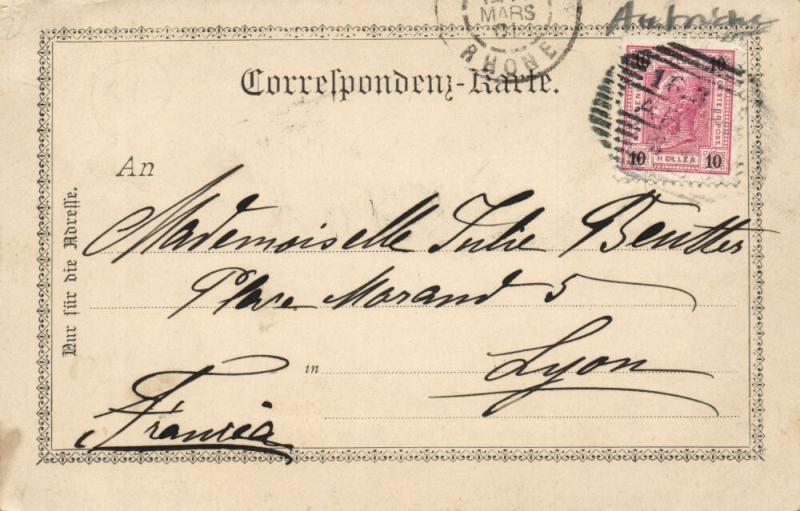 MARS
RHONE
Autriche
Correspondenz-Karte.
10
10 HELLER 10
An
Mademoiselle Julie Beutter
Place Morand 5
in Lyon
Francia
Nur für die Adresse.